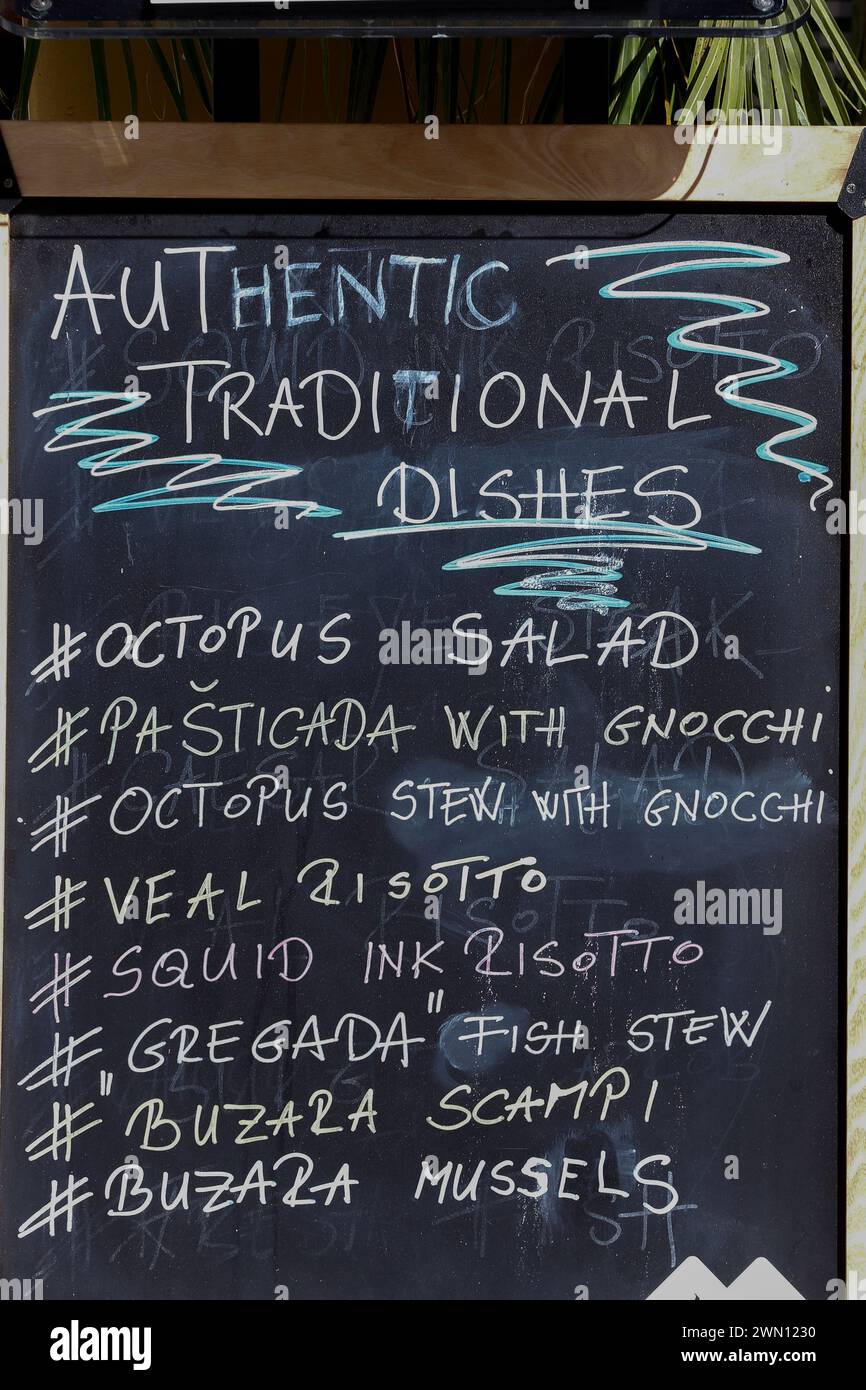 AUTHENTIC
TRADITIONAL
DISHES
#OCTOPUS SALAD
#PAŠTICADA WITH GNOCCHI
#OCTOPUS STEW WITH GNOCCHI
#VEAL RISOTTO
#SQUID INK RISOTTO
#„GREGADA" FISH STEW
#BUZARA SCAMPI
#BUZARA MUSSELS
alamy
Image ID: 2WN1230
www.alamy.com